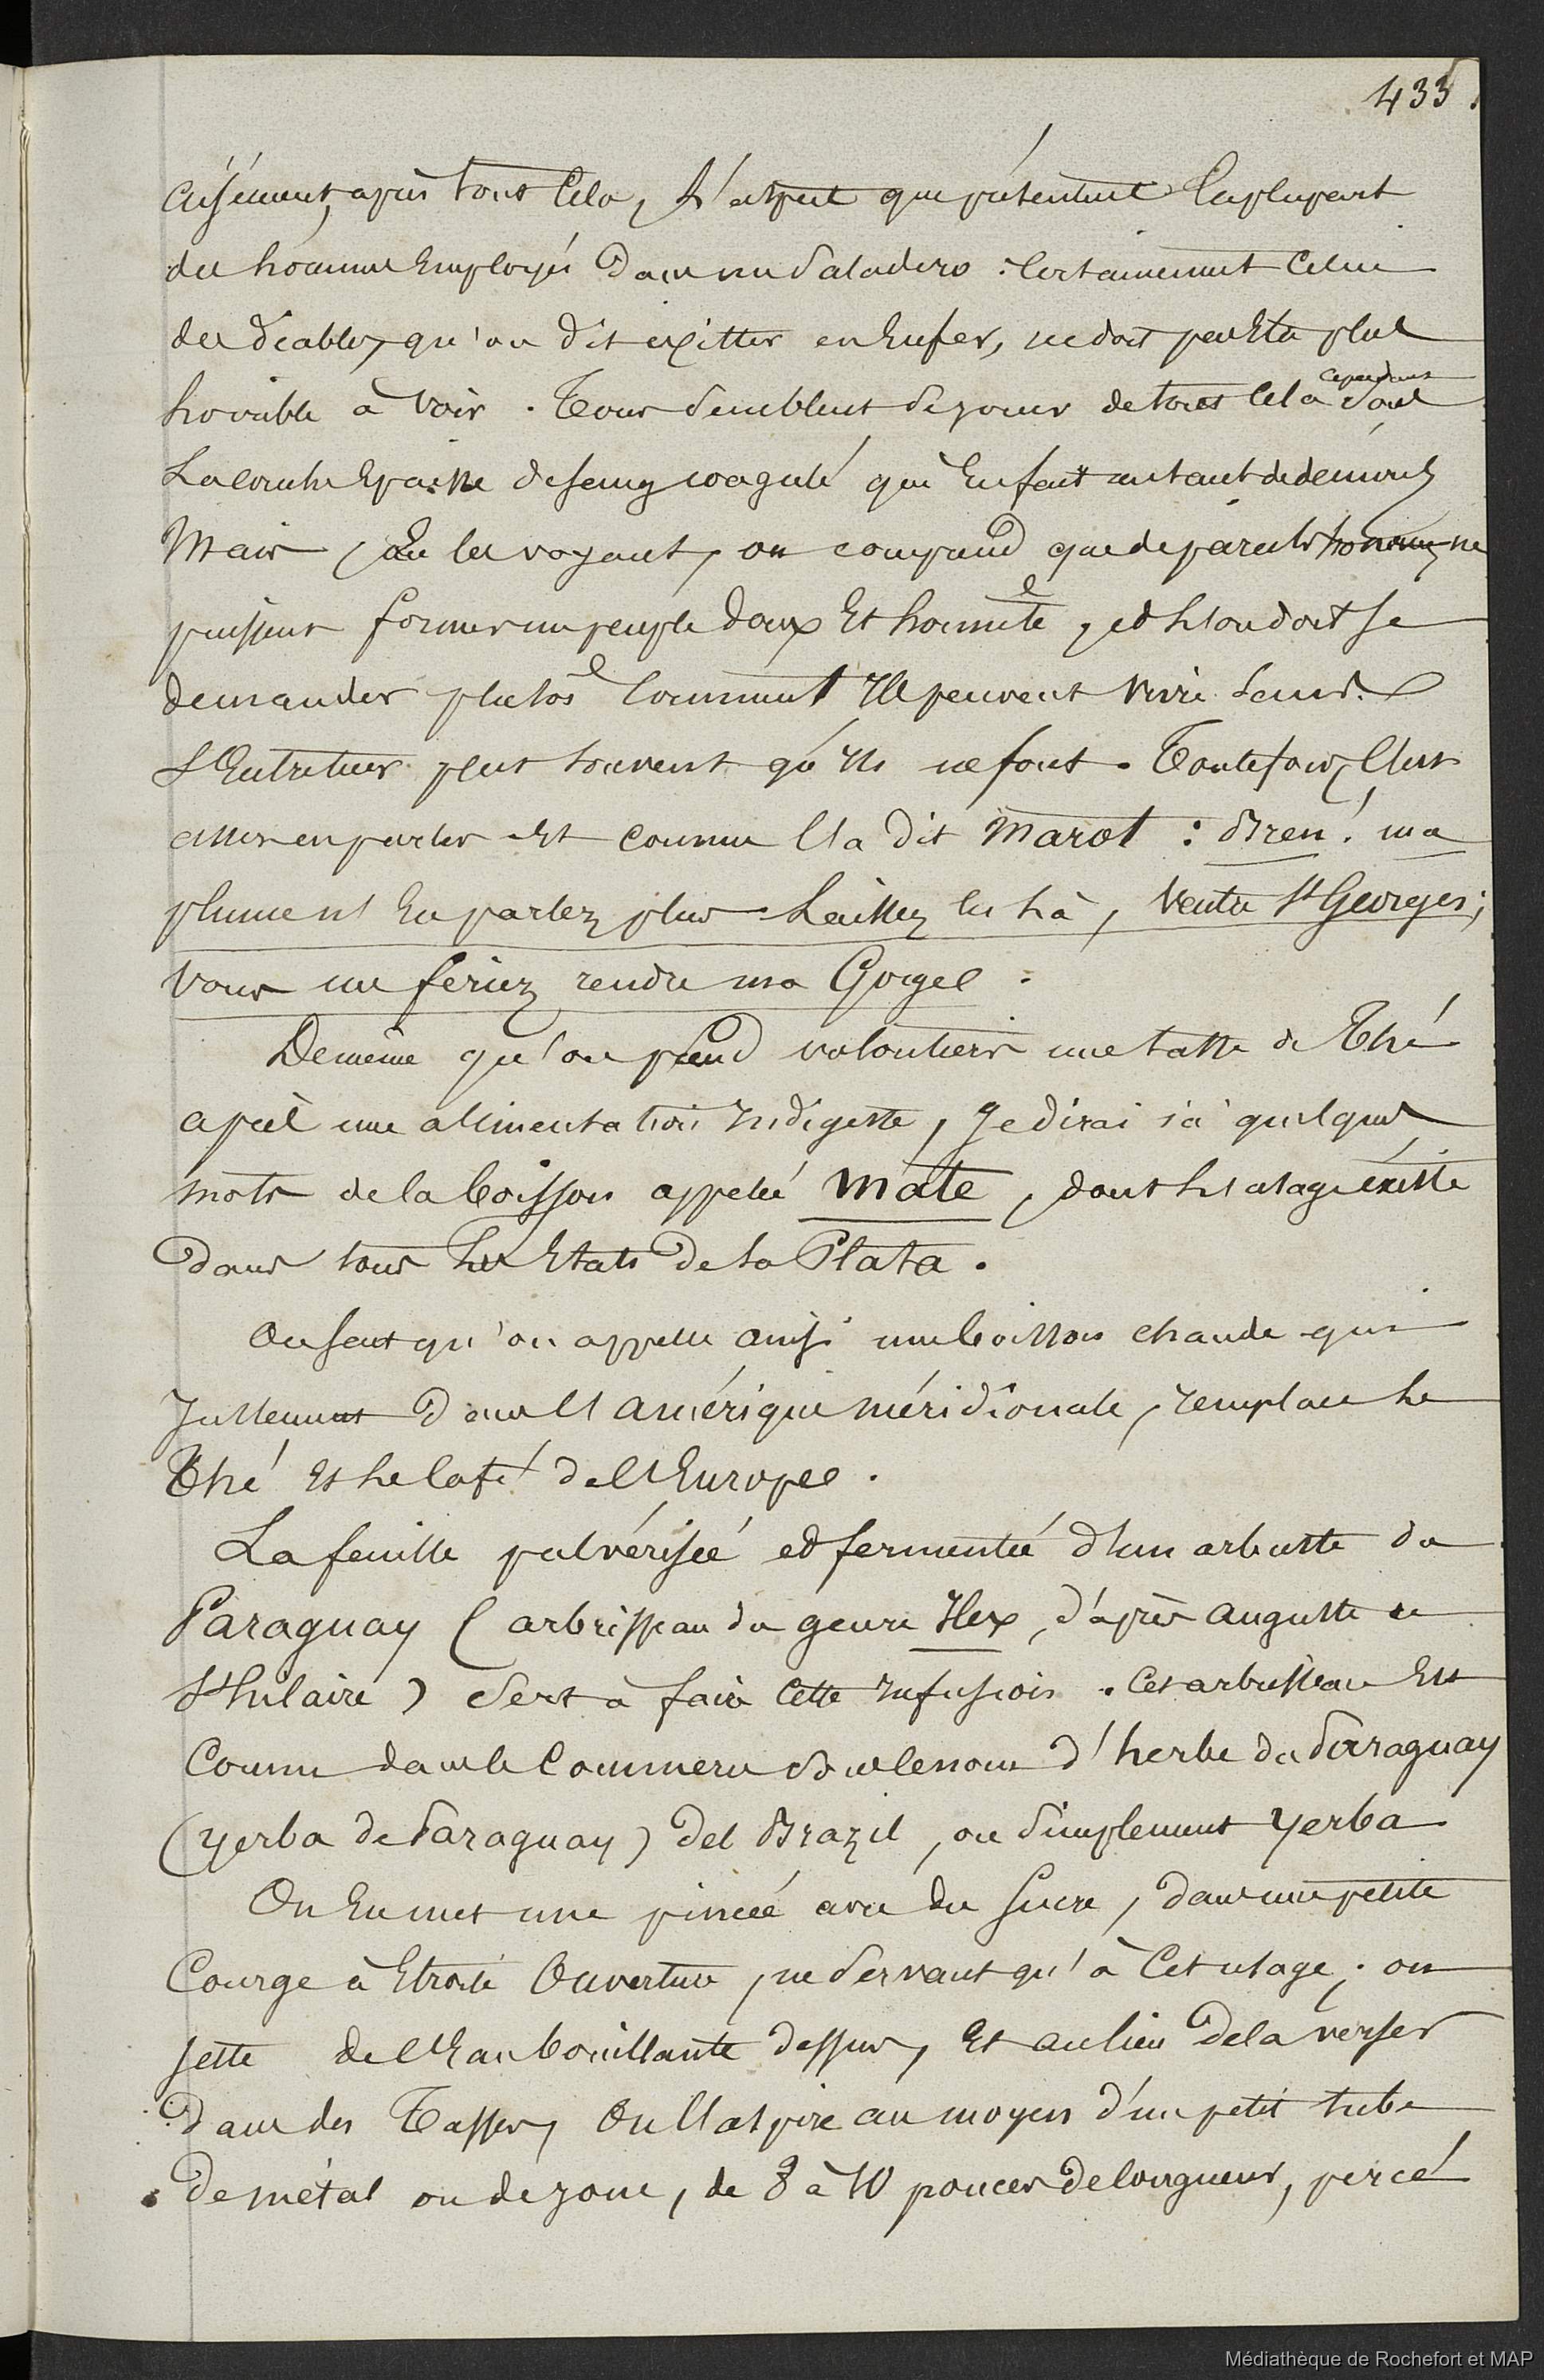 435.
aisément, après tout cela, l'aspect que présentent la plupart
des hommes employés dans un Saladero : certainement celui
des diables, qu'on dit exister en Enfer, ne doit pas être plus
horrible à voir. Tous semblent se jouer de tout cela cependant sous
la couche épaisse de sang coagulé qui en fait autant de démons
Mais, en les voyant, on comprend que de pareils hommes ne
puissent former un peuple doux et honnête, et l'on doit se
demander plutôt comment ils peuvent vivre sans
s'entretuer plus souvent qu'ils ne font. Toutefois, c'est
assez en parler et comme l'a dit Marot : Bren! ma
plume n'en parlez plus Laissez les là, Ventre St Georges;
vous me feriez rendre ma Gorge.
De même qu'on prend volontiers une tasse de Thé
après une alimentation indigeste, je dirai ici quelques
mots de la boisson appelée mate, dont l'usage existe
dans tous les Etats de la Plata.
On sait qu'on appelle ainsi une boisson chaude qui
justement dans l'Amérique méridionale, remplace le
Thé et le café de l'Europe.
La feuille pulvérisée et fermentée d'un arbuste du
Paraguay (arbrisseau du genre Ilex, d'après Auguste de
St hilaire) sert à faire cette infusion. Cet arbrisseau est
connu dans le commerce sous le nom d'herbe du Paraguay
(yerba de Paraguay) del Brazil, ou simplement yerba
On en met une pincée avec du sucre, dans une petite
Courge à étroite ouverture, ne servant qu'à cet usage; on
jette de l'eau bouillante dessus, et au lieu de la verser
dans des Tasses, on l'aspire au moyen d'un petit tube
de métal ou de jonc, de 8 à 10 pouces de longueur, percé
Médiathèque de Rochefort et MAP